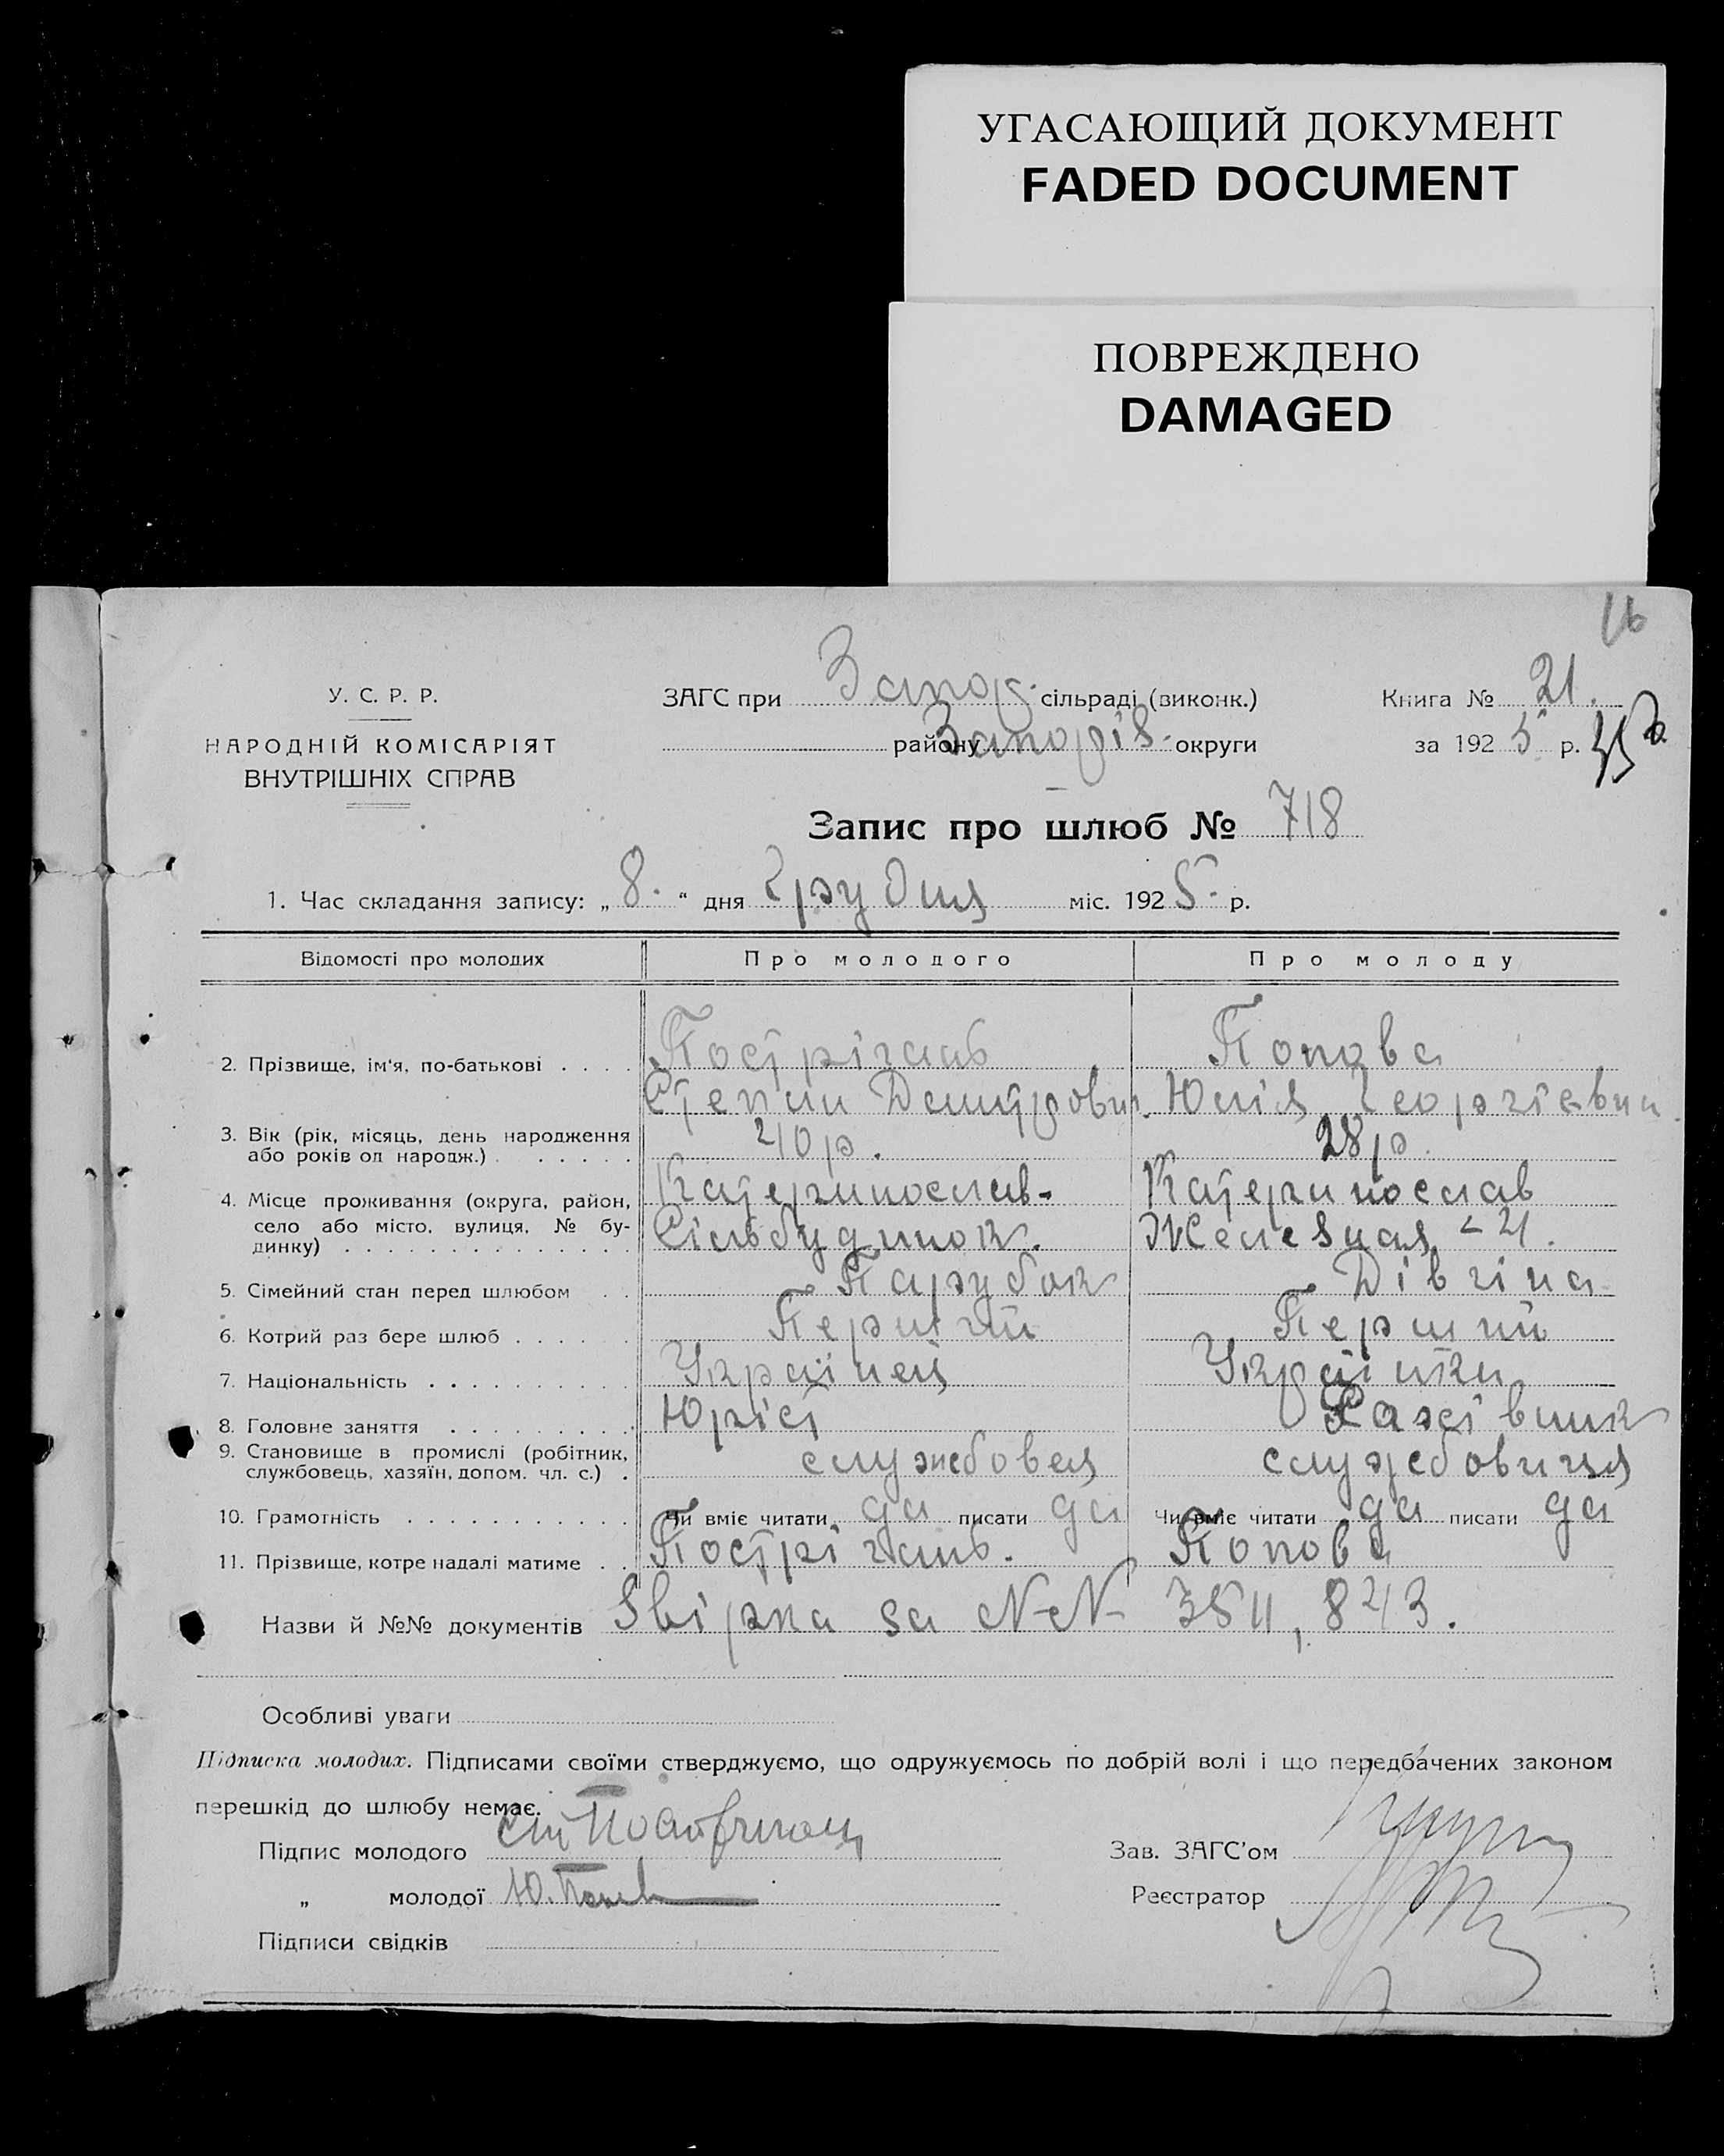 УГАСАЮЩИЙ ДОКУМЕНТ
FADED DOCUMENT
ПОВРЕЖДЕНО
DAMAGED
16
У. С. Р. Р.
НАРОДНІЙ КОМІСАРІЯТ
ВНУТРІШНІХ СПРАВ
ЗАГС при Запор. сільраді (виконк.)
району Запоріз. округи
Книга № 21.
за 192 5 р.
Запис про шлюб № 718
1. Час складання запису: „ 8. “ дня Грудня міс. 192 5 р.
Відомості про молодих Про молодого Про молоду
2. Прізвище, ім'я, по-батькові . . . . Пострігань Попова
Степан Дмитрович. Юлія Георгіевна
3. Вік (рік, місяць, день народження 40 р. 28 р.
або років од народж.) . . . . . .
4. Місце проживання (округа, район, Катеринослав- Катеринослав
село або місто, вулиця, № бу- Сільбудинок. Железная - 21.
динку) . . . . . . . . . . . . . .
5. Сімейний стан перед шлюбом . . Парубок Дівчина
6. Котрий раз бере шлюб . . . . . Перший Перший
7. Національність . . . . . . . . . . Українец Українка
8. Головне заняття . . . . . . . . . Юріст
9. Становище в промислі (робітник,
службовець, хазяїн, допом. чл. с.) . службовец службовиця
10. Грамотність . . . . . . . . . . . Чи вміє читати да писати да Чи вміє читати да писати да
11. Прізвище, котре надалі матиме . . Пострігань. Попова
Назви й №№ документів Звірка за №№ 3511, 843.
Особливі уваги
Підписка молодих. Підписами своїми стверджуємо, що одружуємось по добрій волі і що передбачених законом
перешкід до шлюбу немає.
Підпис молодого
Зав. ЗАГС'ом
„ молодої Ю. Попова
Реєстратор
Підписи свідків